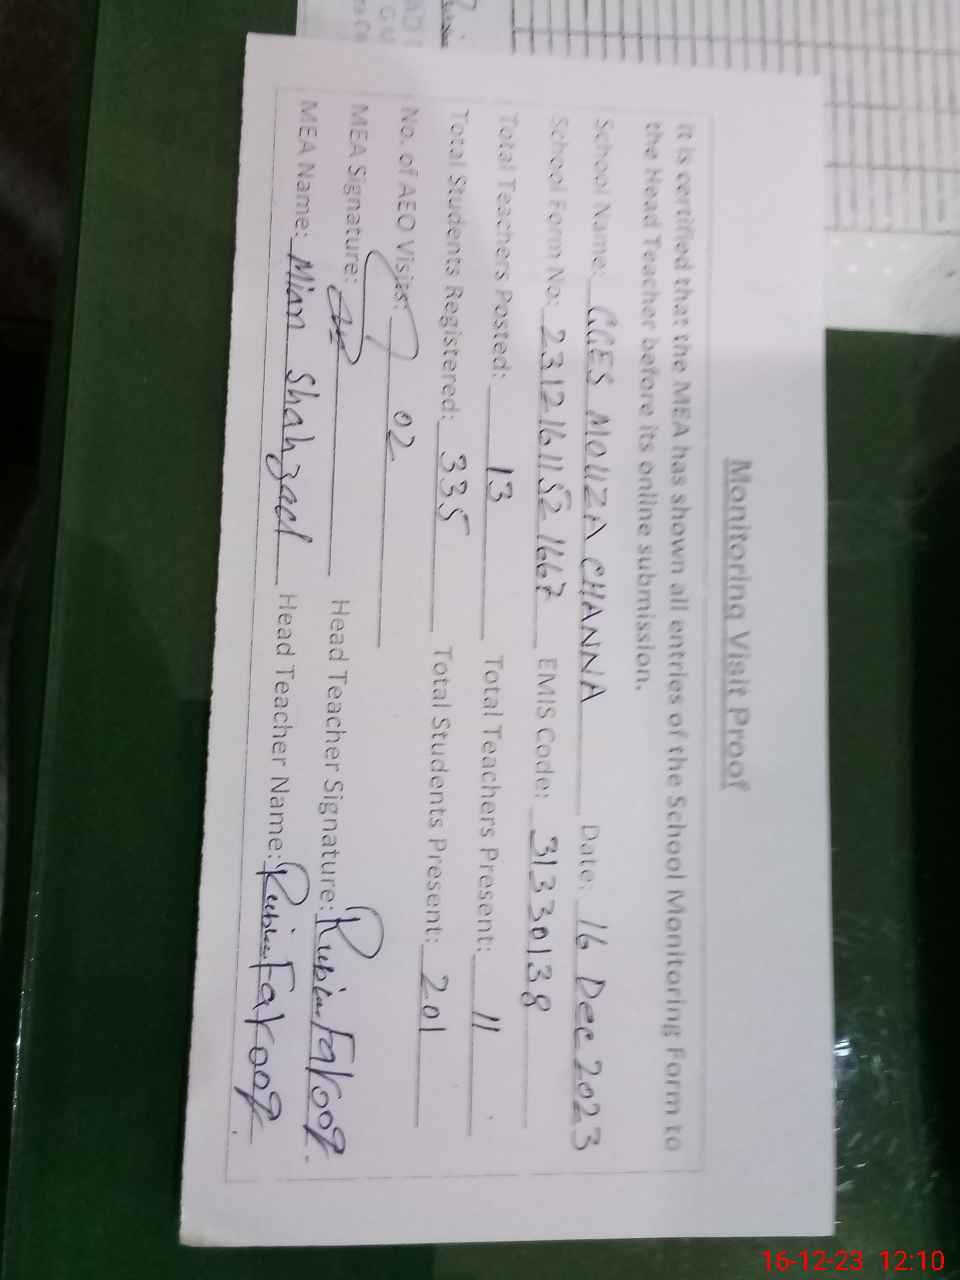 Monitoring Visit Proof
It is certified that the MEA has shown all entries of the School Monitoring Form to
the Head Teacher before its online submission.
School Name: GGES MOUZA CHANNA Date: 16 Dec 2023
School Form No: 23121611521667 EMIS Code: 31330138
Total Teachers Posted: 13 Total Teachers Present: 11
Total Students Registered: 335 Total Students Present: 201
No. of AEO Visits: 02
MEA Signature: Head Teacher Signature: Rubina Farooq.
MEA Name: Mian Shahzad Head Teacher Name: Rubina Farooq.
16-12-23 12:10